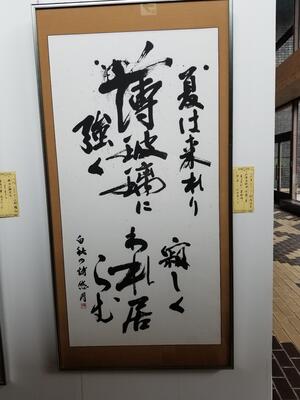 夏は来れり
薄玻璃に
強く
寂しく
われ居
らむ
白秋の詩 悠月